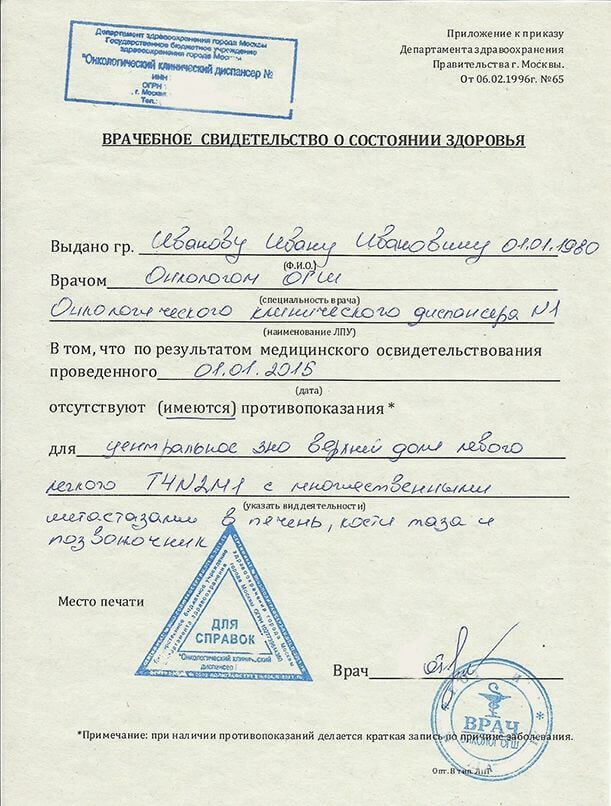 Департамент здравоохранения города Москвы
Государственное бюджетное учреждение
здравоохранения города Москвы
"Онкологический клинический диспансер №
ИНН
ОГРН
г. Москва
Тел.:
Приложение к приказу
Департамента здравоохранения
Правительства г. Москвы.
От 06.02.1996г. №65
ВРАЧЕБНОЕ СВИДЕТЕЛЬСТВО О СОСТОЯНИИ ЗДОРОВЬЯ
Выдано гр. Иванову Ивану Ивановичу 01.01.1980
(Ф.И.О.)
Врачом Онкологом ОГШ
(специальность врача)
Онкологического клинического диспансера №1
(наименование ЛПУ)
В том, что по результатом медицинского освидетельствования
проведенного 01.01.2015
(дата)
отсутствуют (имеются) противопоказания *
для центральное зно верхней доли левого
легкого T4N2M1 с множественными
(указать вид деятельности)
метастазами в печень, кости таза и
позвоночник
Место печати
ДЛЯ
СПРАВОК
"Онкологический клинический
диспансер
Врач
ВРАЧ
ОНКОЛОГ ОГШ
*Примечание: при наличии противопоказаний делается краткая запись по причине заболевания.